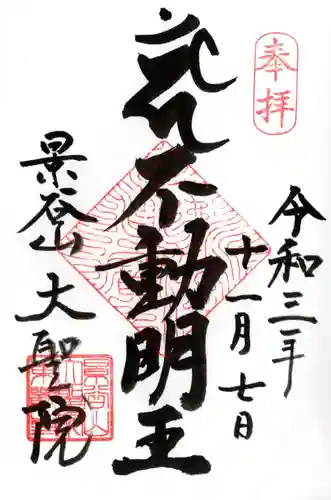 奉拝
令和三年
十一月七日
不動明王
景谷山
大聖院